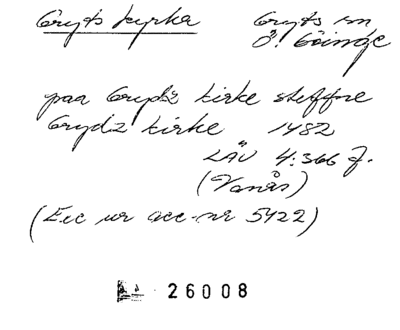 Gryts kyrka
Gryts sn
Ö. Göinge
paa Grydz kirke steffne
Grydz kirke 1482
LÄU 4:366 f.
(Vanås)
(Exc ur acc-nr 5422)
26008